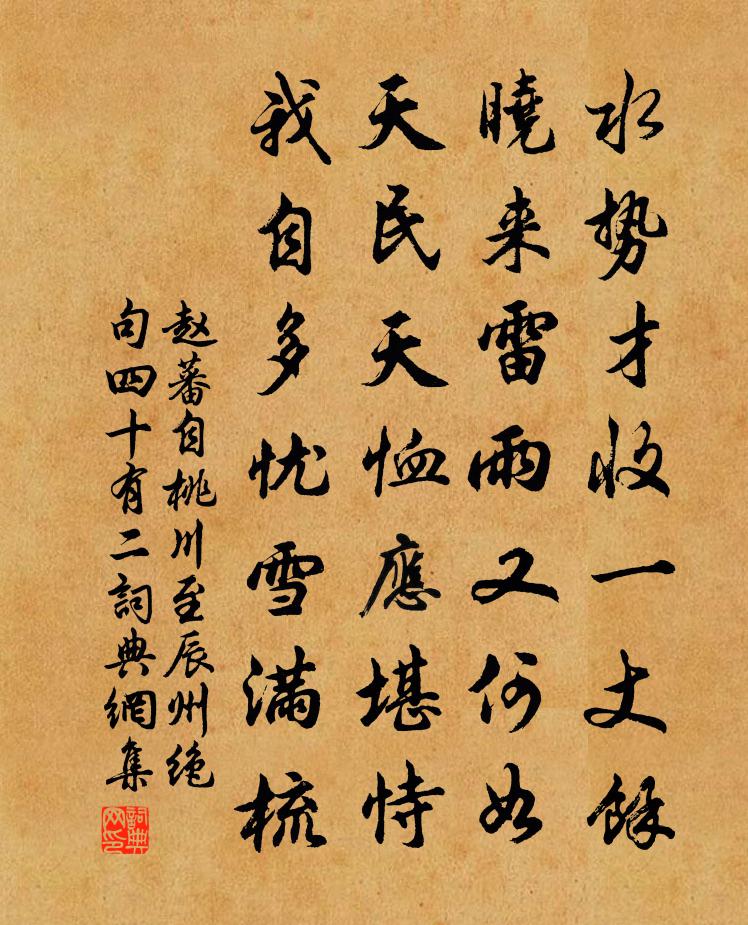 水势才收一丈餘
曉来雷雨又何如
天民天恤應堪恃
我自多忧雪满梳
赵蕃自桃川至辰州绝
句四十有二詞典網集
詞典
网印